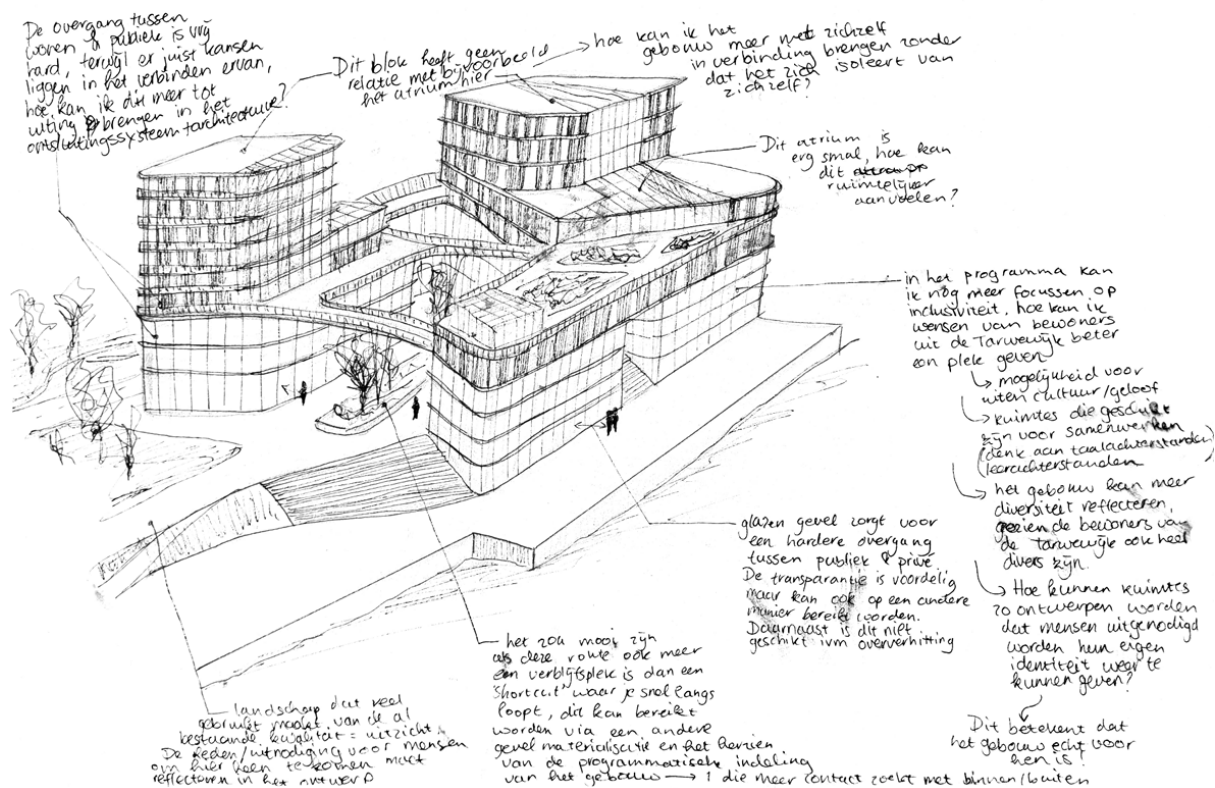 De overgang tussen
wonen & publiek is vrij
hard, terwijl er juist kansen
liggen in het verbinden ervan,
hoe kan ik dit meer tot
uiting brengen in het
ontsluitingssysteem + architectuur?
Dit blok heeft geen
relatie met bijvoorbeeld
het atrium hier
hoe kan ik het
gebouw meer met zichzelf
in verbinding brengen zonder
dat het zich isoleert van
zichzelf?
Dit atrium is
erg smal, hoe kan
dit
ruimtelijker
aanvoelen?
in het programma kan
ik nog meer focussen op
inclusiviteit, hoe kan ik
wensen van bewoners
uit de Tarwewijk beter
een plek geven
↳ mogelijkheid voor
uiten cultuur/geloof
↳ ruimtes die geschikt
zijn voor samenwerken
(denk aan taalachterstanden/
leerachterstanden
↳ het gebouw kan meer
diversiteit reflecteren,
gezien de bewoners van
de Tarwewijk ook heel
divers zijn.
↳ Hoe kunnen ruimtes
zo ontworpen worden
dat mensen uitgenodigd
worden hun eigen
identiteit weer te
kunnen geven?
Dit betekent dat
het gebouw echt voor
hen is!
glazen gevel zorgt voor
een hardere overgang
tussen publiek & privé.
De transparantie is voordelig
maar kan ook op een andere
manier bereikt worden.
Daarnaast is dit niet
geschikt ivm oververhitting
het zou mooi zijn
als deze route ook meer
een verblijfsplek is dan een
'shortcut' waar je snel langs
loopt, dit kan bereikt
worden via een andere
gevelmaterialisatie en het herzien
van de programmatische indeling
van het gebouw → 1 die meer contact zoekt met binnen/buiten
landschap dat veel
gebruikt maakt van de al
bestaande kwaliteit = uitzicht.
De reden/uitnodiging voor mensen
om hier heen te komen moet
reflecteren in het ontwerp